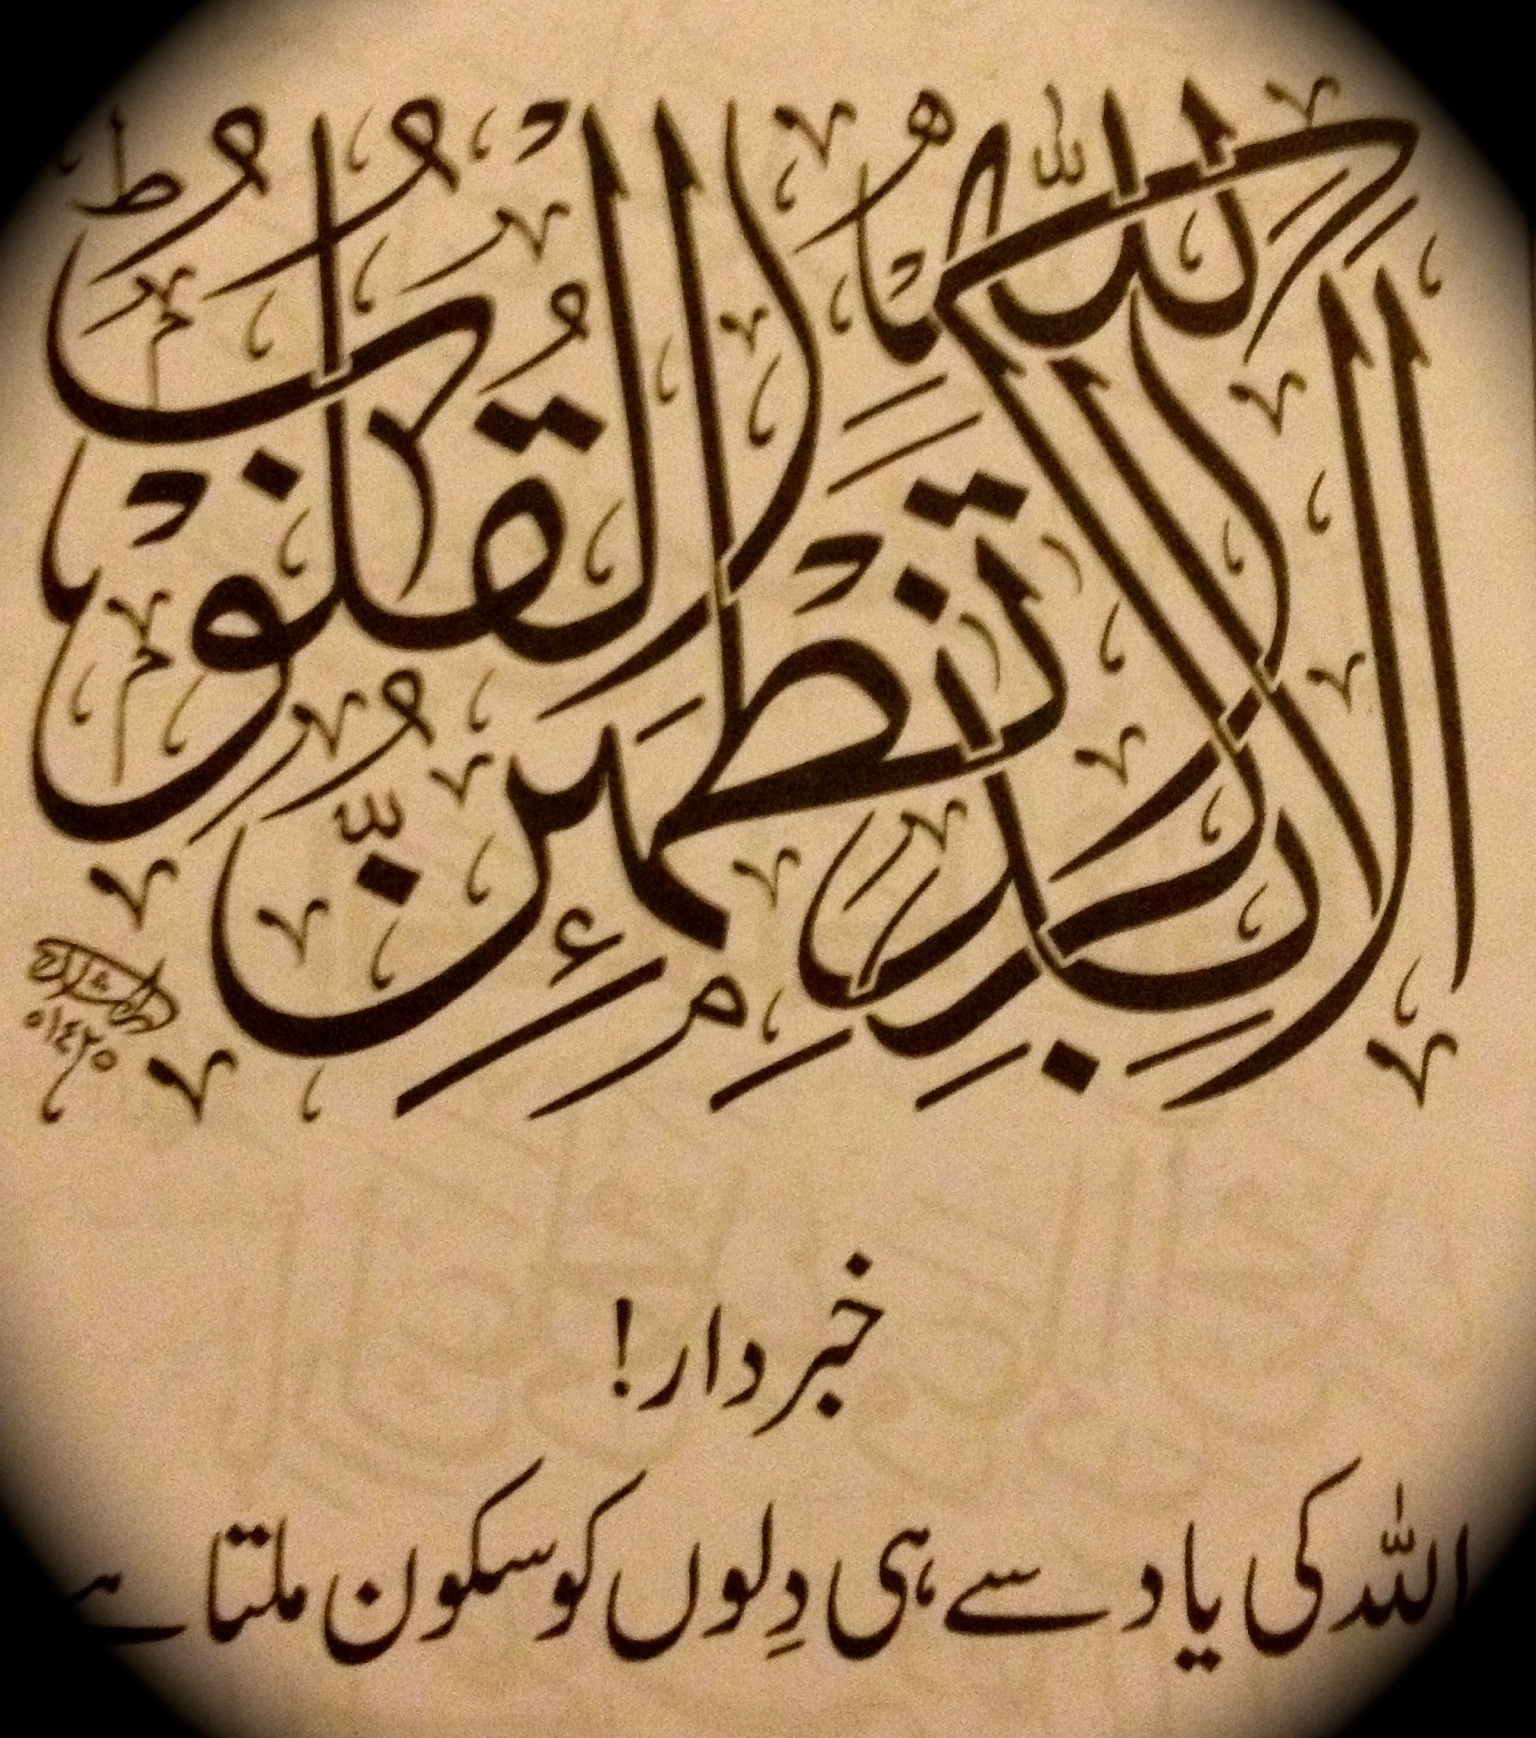 أَلَا بِذِكْرِ اللّٰهِ تَطْمَئِنُّ الْقُلُوْبُ
١٤٢٥ه
خبردار!
اللہ کی یاد سے ہی دِلوں کو سکون ملتا ہے